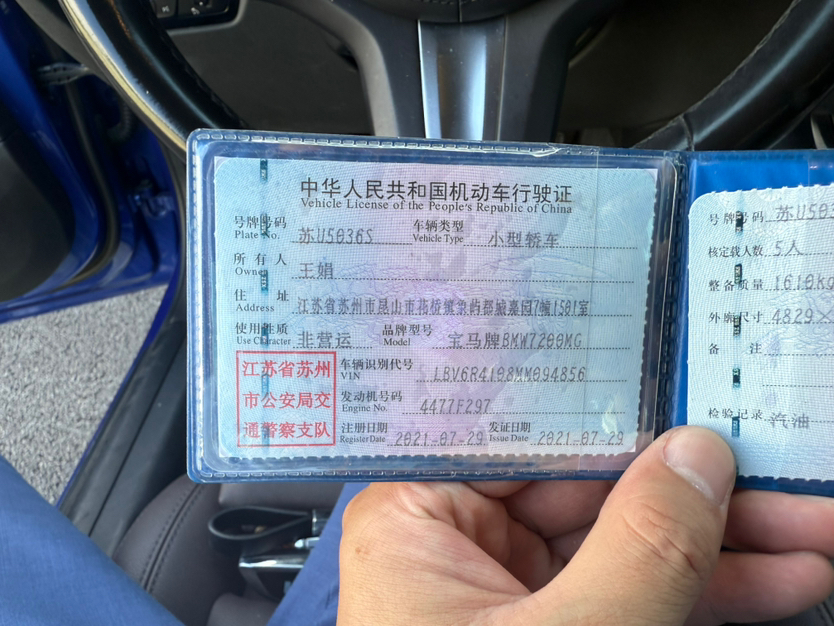 中华人民共和国机动车行驶证
Vehicle License of the People's Republic of China
号牌号码 苏U5036S 车辆类型 小型轿车
Plate No. Vehicle Type
所有人 王娟
Owner
住址 江苏省苏州市昆山市花桥镇象屿都城嘉园7幢1501室
Address
使用性质 非营运 品牌型号 宝马牌BMW7200MG
Use Character Model
江苏省苏州
市公安局交
通警察支队
车辆识别代号 LBV6R4108MM094856
VIN
发动机号码 4477F297
Engine No.
注册日期 2021-07-29 发证日期 2021-07-29
Register Date Issue Date
号牌号码 苏U503
核定载人数 5人
整备质量 1610kg
外廓尺寸 4829×
备注
检验记录 汽油